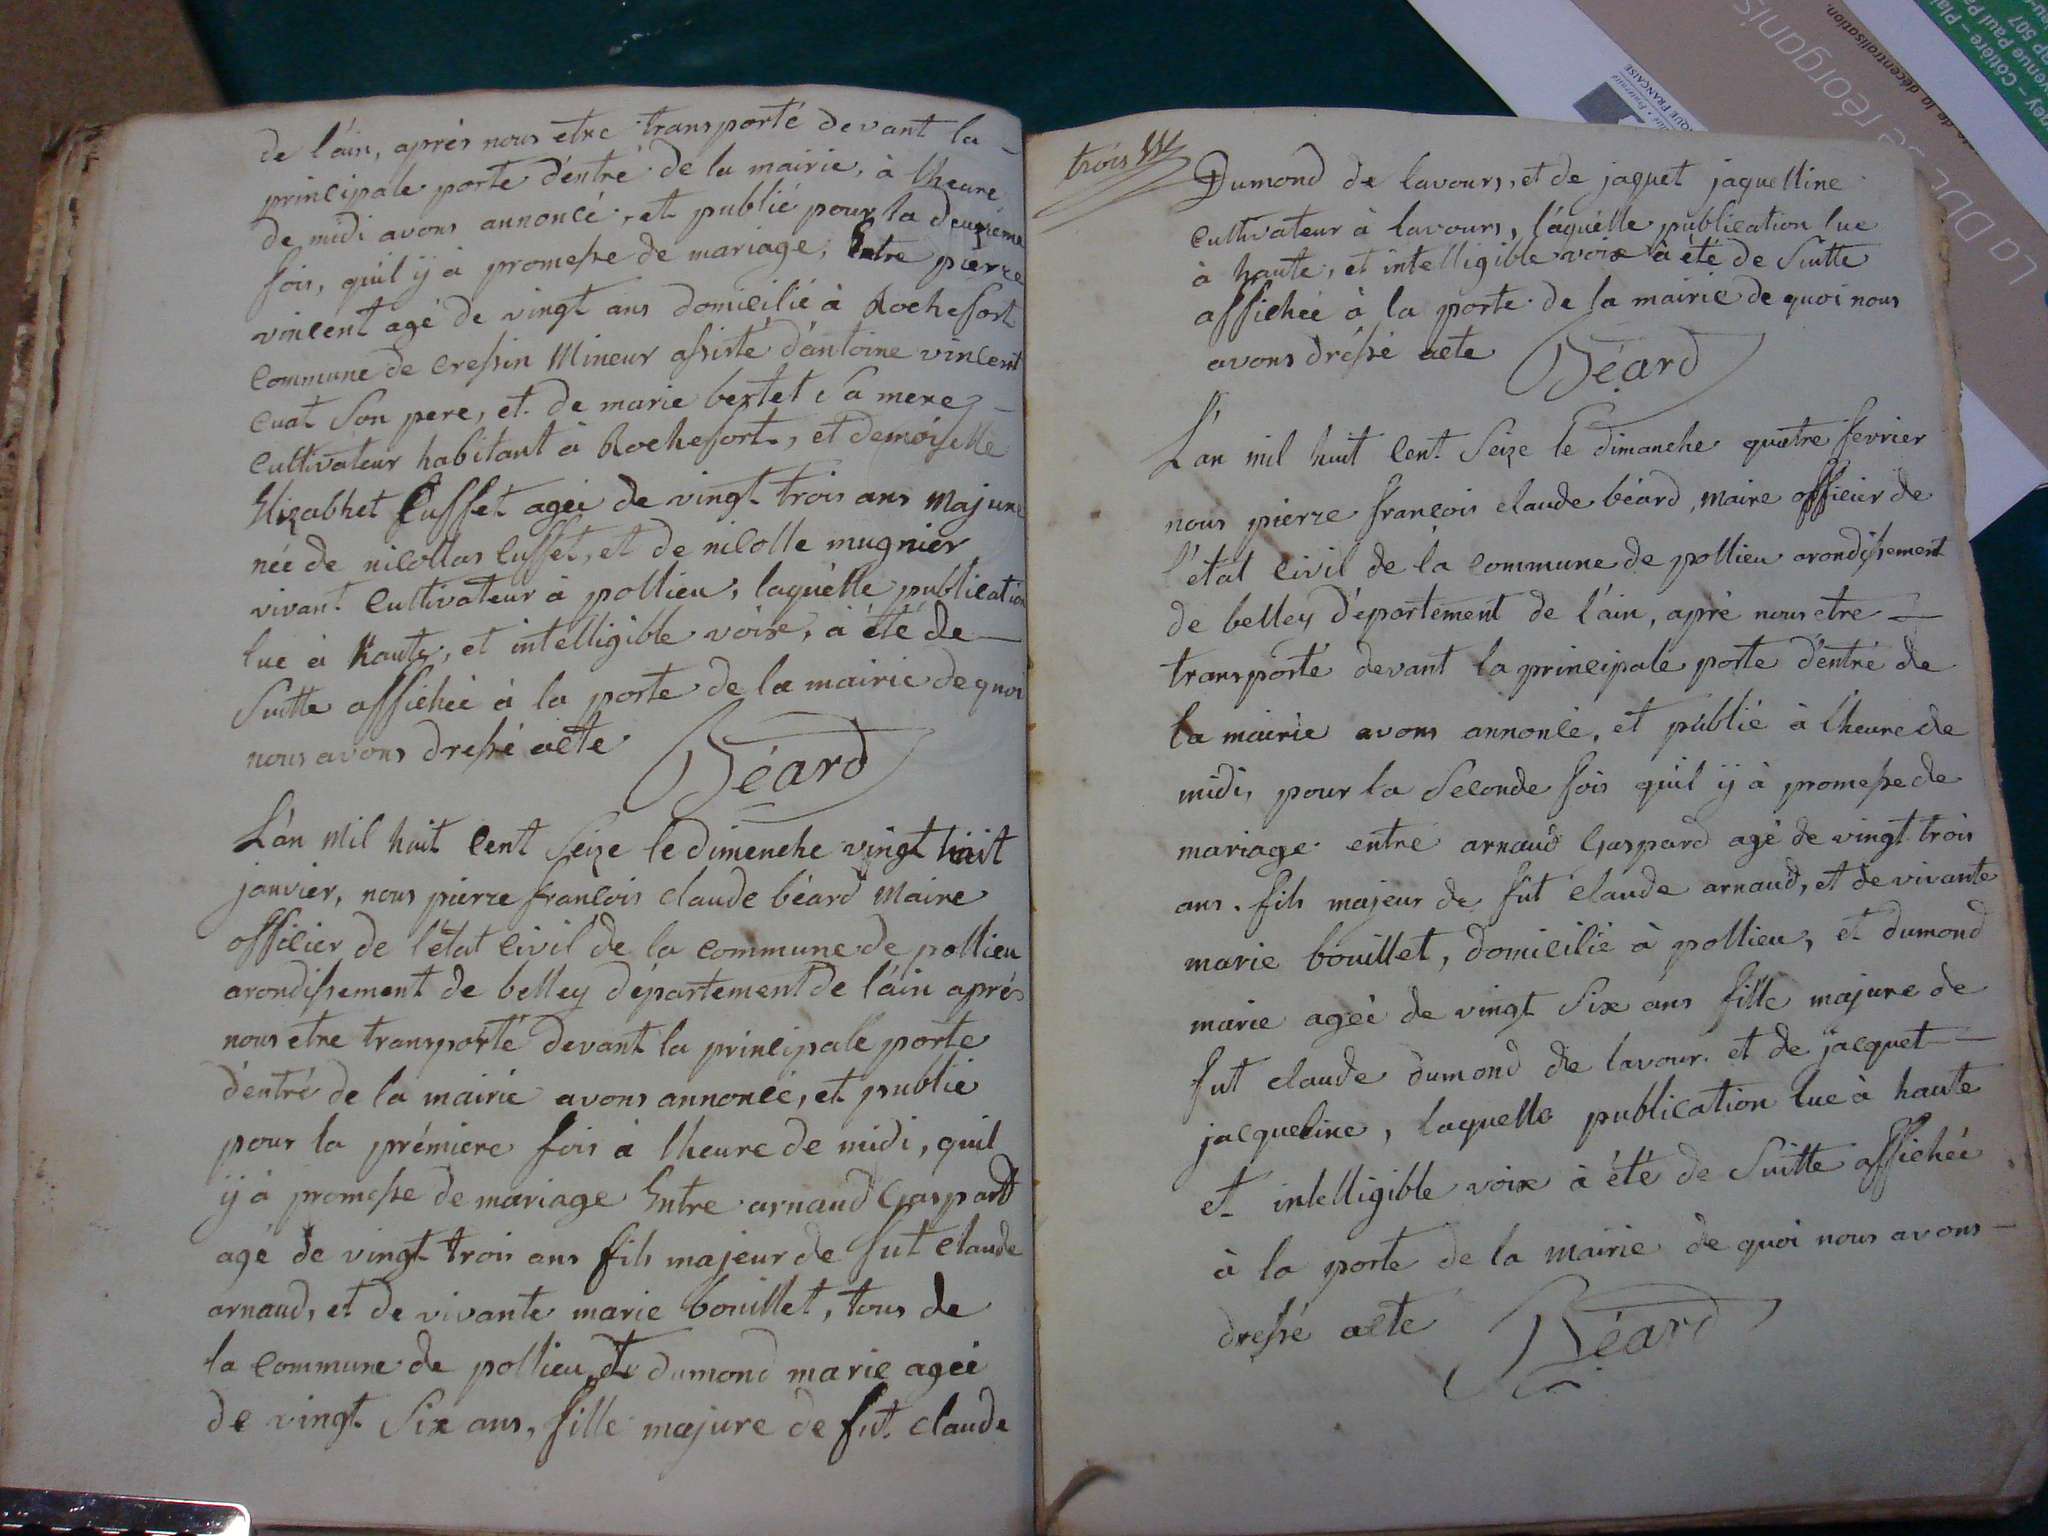 de l'áin, aprés nous etre transporté devant la
principale porte d'éntré de la mairie, à lheure
de midi avons annoncé, et publié pour la deuxieme
fois, quil ÿ à promesse de mariage, Entre pierre
vincent agé de vingt ans domicilié à Rochefort
commune de cressin Mineur assisté d'antoine vincent
cuat Son pere, et de marie bertet Sa mere
cultivateur habitant à Rochefort, et demoiselle
Elizabhet Cusset ageé de vingt trois ans Majure
née de nicollas Cusset, et de nicolle mugnier
vivant Cultivateur à pollieu, laquélle publication
lue à haute, et intelligible voix, à été de
Suitte affichéé à la porte de la mairie de quoi
nous avons dressé acte Béard
L'an Mil huit Cent Seize le dimenche vingt huit
janvier, nous pierre francois claude béard Maire
officier de l'état Civil de la commune de pollieu
arondissement de belley département de l'áin aprés
nous etre transporté devant la principale porte
d'entré de la mairie avons annoncé, et publié
pour la prémiere fois à lheure de midi, quil
ÿ à promesse de mariage Entre arnaud Gaspard
agé de vingt trois ans fils majeur de fut Claude
arnaud, et de vivante marie bouillet, tous de
la commune de pollieu, et dumond marie ageé
de vingt Six ans, fille majure de fut claude
trois
Dumond de lavours, et de jaquet jaquelline
cultivateur à lavours, láquélle publication lue
à haute, et intelligible voix à été de Suitte
affichéé à la porte de la mairie de quoi nous
avons dréssé acte Béard
L'an mil huit Cent Seize le dimanche quatre fevrier
nous pierre francois claude béard, maire officier de
l'état Civil de la commune de pollieu arondissement
de belley département de l'áin, apré nous etre
transporté devant la principale porte d'entré de
la mairie avons annoncé, et publié à lheure de
midi, pour la Seconde fois quil ÿ à promesse de
mariage entre arnaud Gaspard agé de vingt trois
ans, fils majeur de fut Claude arnaud, et de vivante
marie bouillet, domicilié à pollieu, et dumond
marie ageé de vingt Six ans fille majure de
fut claude dumond de lavour et de jacquet
jacqueline, laquelle publication lue à haute
et intelligible voix à été de Suitte affichéé
à la porte de la Mairie de quoi nous avons
dressé acte Béard
La DDE se réorganis
de la décentralisation.
QUE FRANÇAISE
gey – Côtière – Plai
venue Paul Pa
BP 507